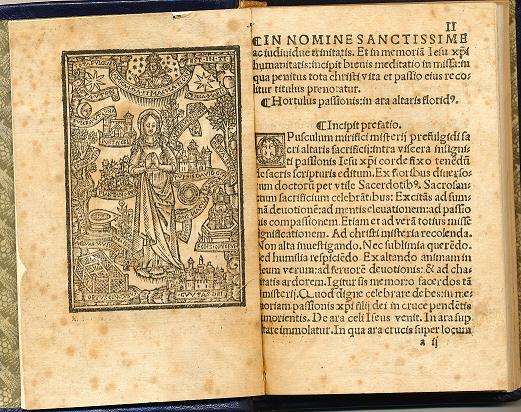 II
¶IN NOMINE SANCTISSIME
ac indiuidue trinitatis. Et in memoriã Iesu xp̃i
humanitatis: incipit breuis meditatio in missa: in
qua penitus tota christi vita et passio eius reco
litur titulus prenotatur.
¶Hortulus passionis: in ara altaris floridꝰ.
¶Incipit prefatio.
OPusculum mirifici misterij prefulgidi sa
cri altaris sacrificij: intra viscera insigni
ti passionis Iesu xp̃i corde fixo tenedũ
de sacris scripturis editum. Ex floribus diuerso
rum doctorũ per vtile Sacerdotibꝰ. Sacrosan
tum sacrificium celebrãtibus: Excitãs ad sum
mã deuotionẽ: ad mentis eleuationem: ad passio
nis compassionem. Etiam et ad verã totius misse
significationem. Ad christi misteria recolenda.
Non alta inuestigando. Nec sublimia querẽdo.
sed humilia respiciẽdo. Exaltando animam in
deum verum: ad feruorẽ deuotionis: & ad cha
ritatis ardorem. Igitur sis memor o sacerdos tã
misterij. Quod digne celebrare debes: in me
moriam passionis xp̃i filij dei in cruce pendẽtis
morientis. De ara celi Iesus venit. In ara stip
immolatur. In qua ara crucis super locum
a ij